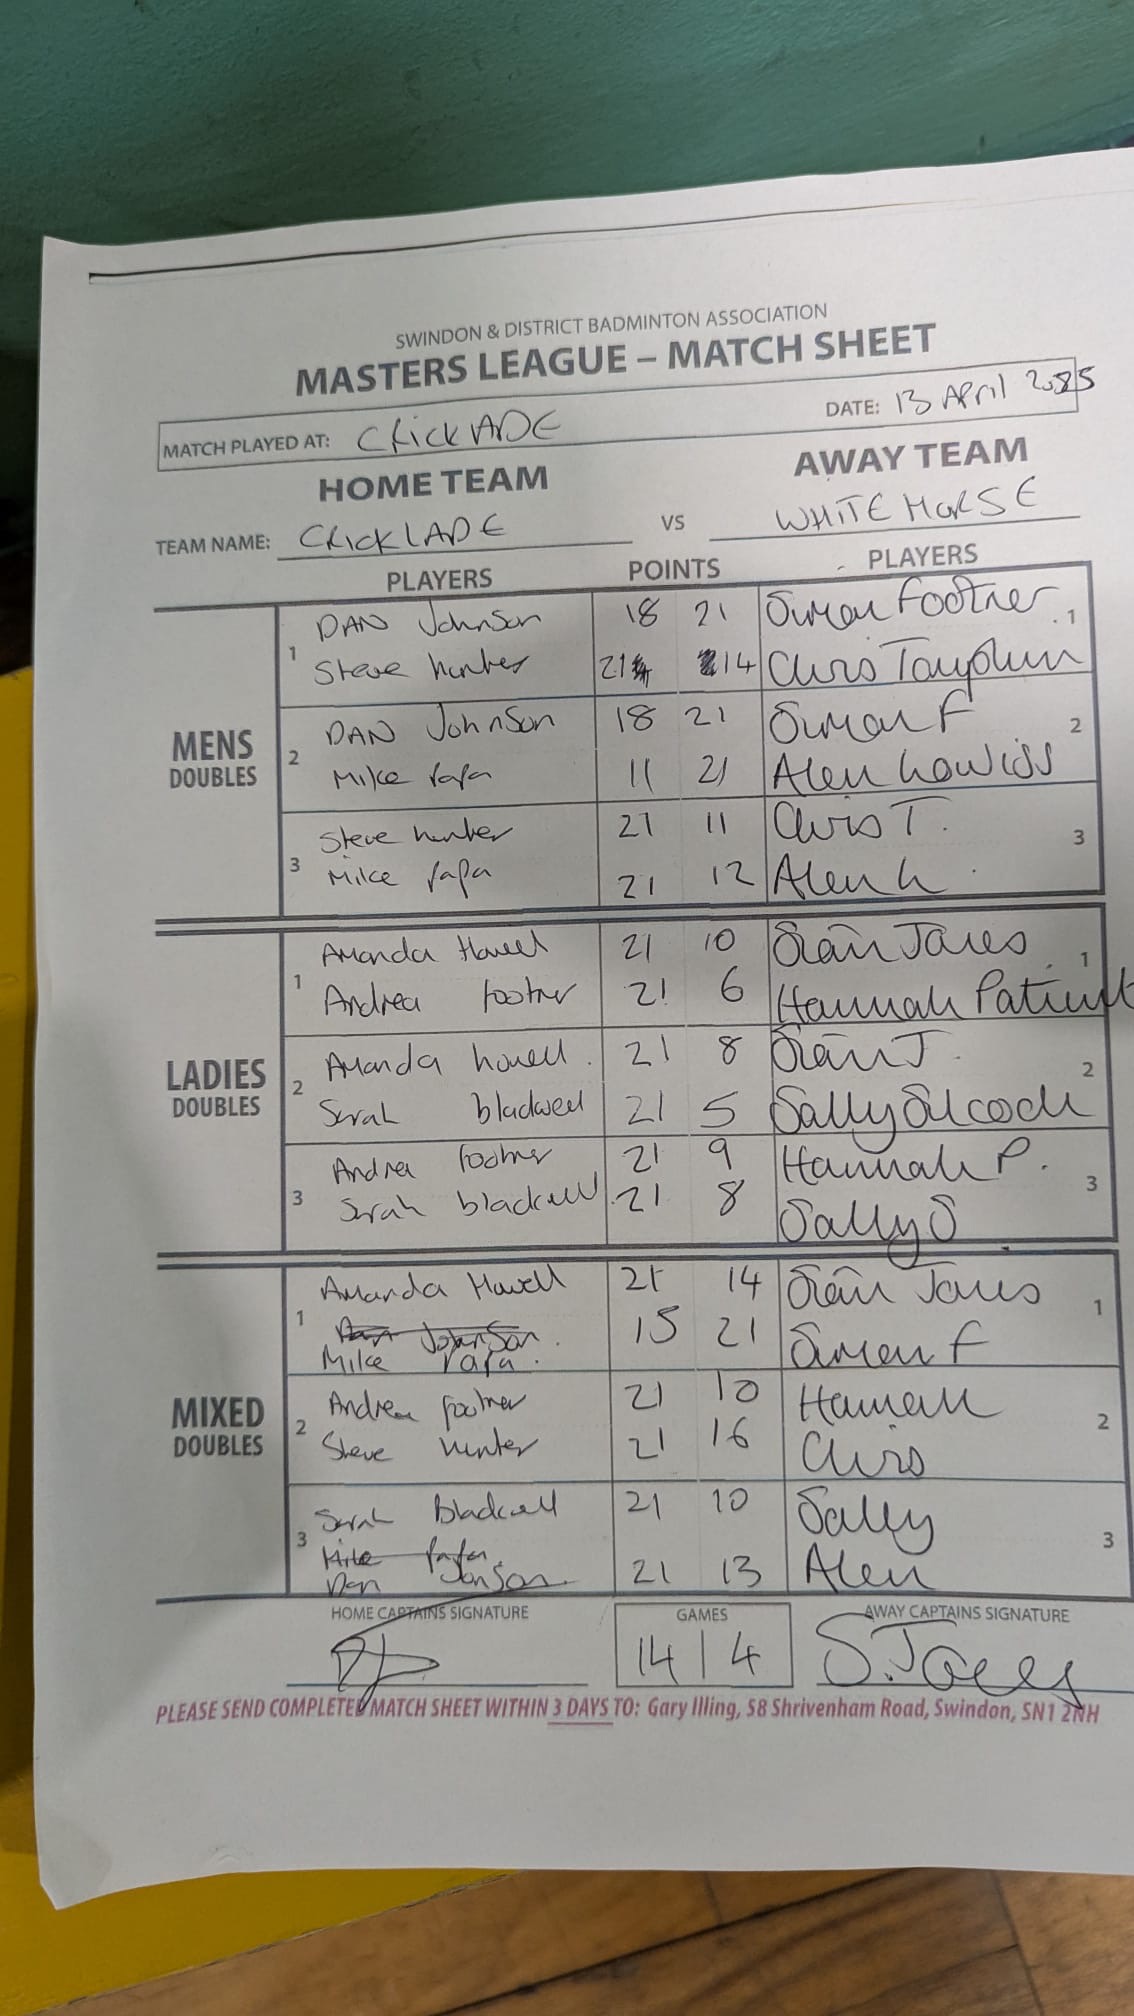 SWINDON & DISTRICT BADMINTON ASSOCIATION
MASTERS LEAGUE – MATCH SHEET
MATCH PLAYED AT: CRICKLADE DATE: 13 April 2025
HOME TEAM AWAY TEAM
TEAM NAME: CRICKLADE VS WHITE HORSE
PLAYERS POINTS PLAYERS
MENS DOUBLES
1 DAN Johnson 18 21 Simon Footner 1
Steve hunter 21 14 Chris
2 DAN Johnson 18 21 Simon F 2
Mike papa 11 21 Alen
3 Steve hunter 21 11 Chris T. 3
Mike papa 21 12 Alen h
LADIES DOUBLES
1 Amanda Howell 21 10 Siân Jones 1
Andrea footner 21 6 Hannah Patient
2 Amanda howell. 21 8 Siân J. 2
Sarah blackwell 21 5 Sally Silcock
3 Andrea footner 21 9 Hannah P. 3
Sarah blackwell 21 8 Sally S
MIXED DOUBLES
1 Amanda Howell 21 14 Siân Jones 1
Dan Johnson. 15 21 Simon F
Mike Papa.
2 Andrea footner 21 10 Hannah 2
Steve hunter 21 16 Chris
3 Sarah Blackwell 21 10 Sally 3
Mike papa.
Dan Jonson 21 13 Alen
HOME CAPTAINS SIGNATURE GAMES AWAY CAPTAINS SIGNATURE
14 | 4 S. Jones
PLEASE SEND COMPLETED MATCH SHEET WITHIN 3 DAYS TO: Gary Illing, 58 Shrivenham Road, Swindon, SN1 2NH